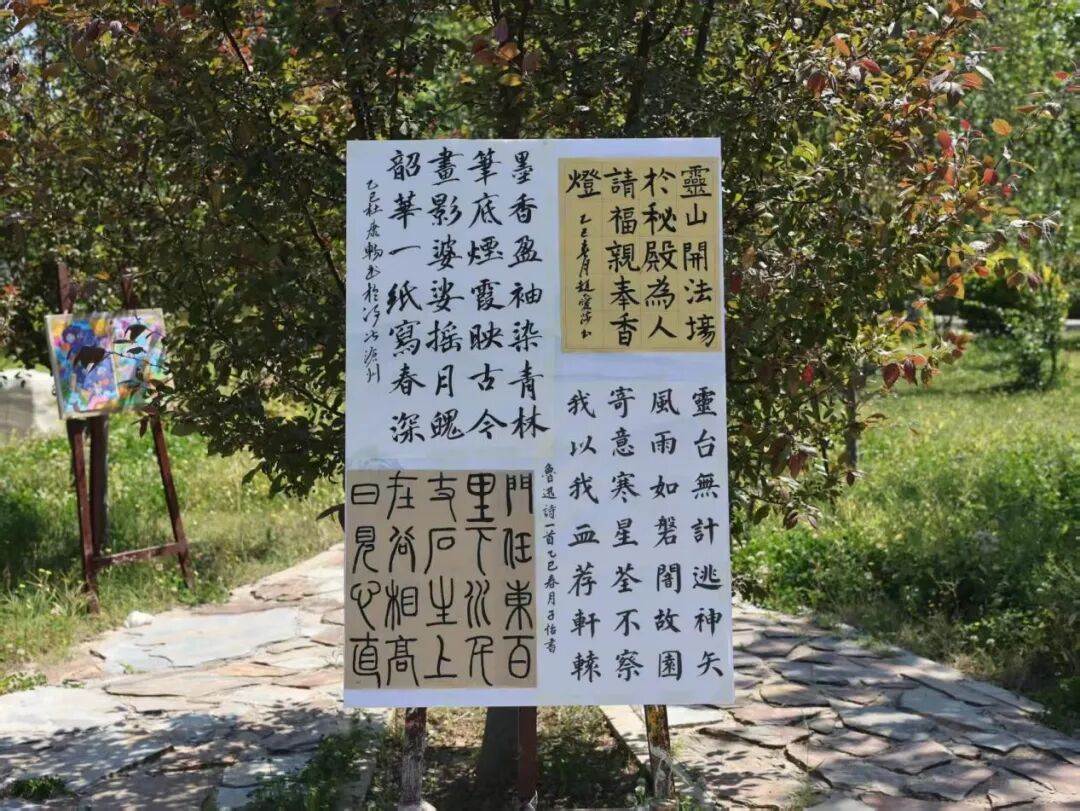 靈山開法場
於秘殿為人
請福親奉香
燈
乙巳春月趙愛萍书
墨香盈袖染青林
筆底煙霞映古今
畫影婆娑摇月魄
韶華一紙寫春深
乙巳杜康暢书於
靈台無計逃神矢
風雨如磐闇故園
寄意寒星荃不察
我以我血荐軒轅
魯迅詩一首乙巳春月子怡書
門任東百
里下
石生上
在谷相高
曰見心直